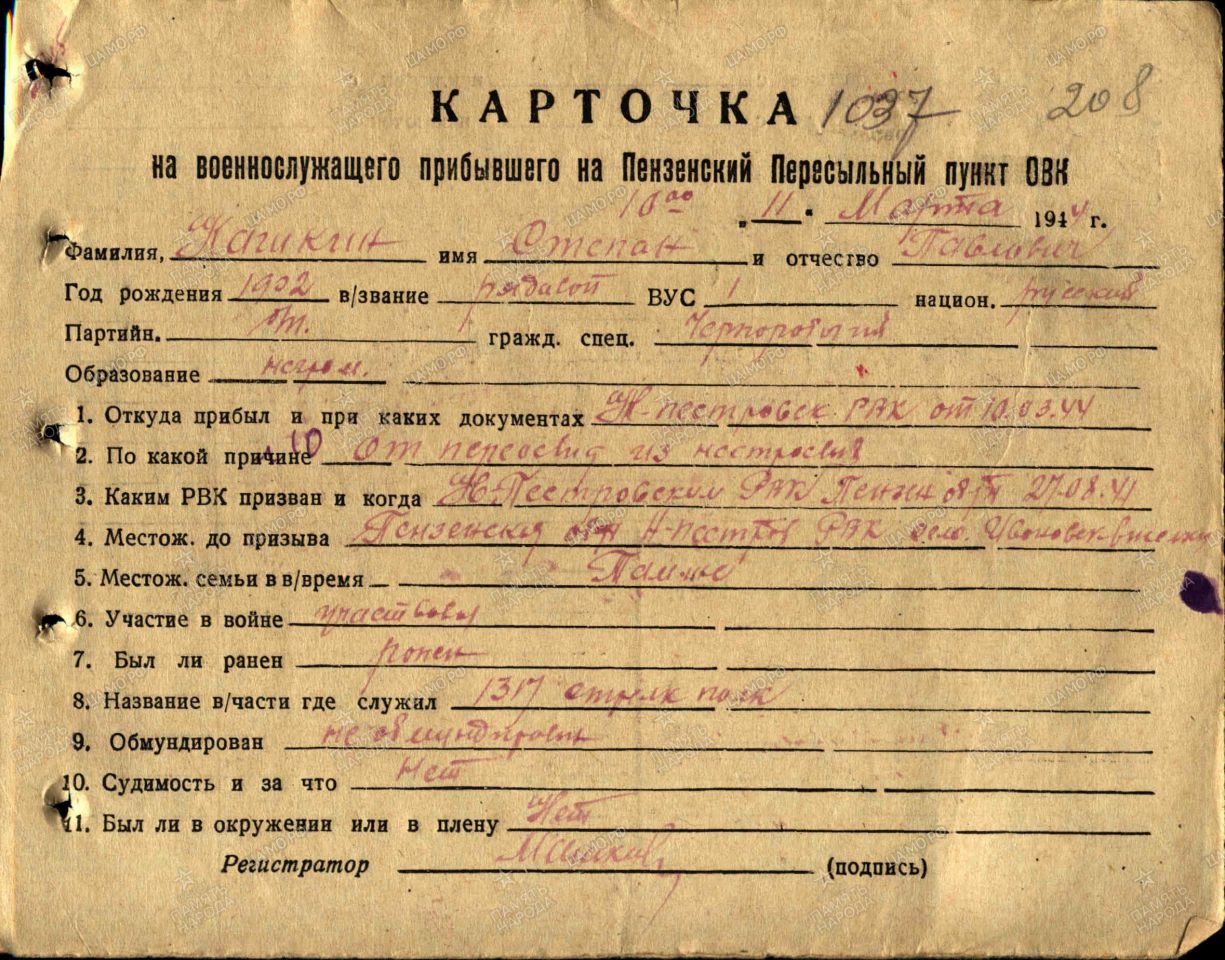 КАРТОЧКА 1037 208
на военнослужащего прибывшего на Пензенский Пересыльный пункт ОВК
10 00 „ 11 " Марта 1944 г.
Фамилия, имя Степан и отчество Павлович
Год рождения 1902 в/звание рядовой ВУС 1 национ. русский
Партийн. б/п. гражд. спец. Чернорабочий
Образование негром.
1. Откуда прибыл и при каких документах Н-пестровск РВК от 10.03.44
2. По какой причине 10 От переосвид из
3. Каким РВК призван и когда Н-Пестровским РВК Пенз 27.08.41
4. Местож. до призыва Пензенская обл Н-пестров РВК село.
5. Местож. семьи в в/время
6. Участие в войне участвовал
7. Был ли ранен ранен
8. Название в/части где служил 1317 стрелк полк
9. Обмундирован не обмундирован
10. Судимость и за что нет
11. Был ли в окружении или в плену Нет
Регистратор (подпись)